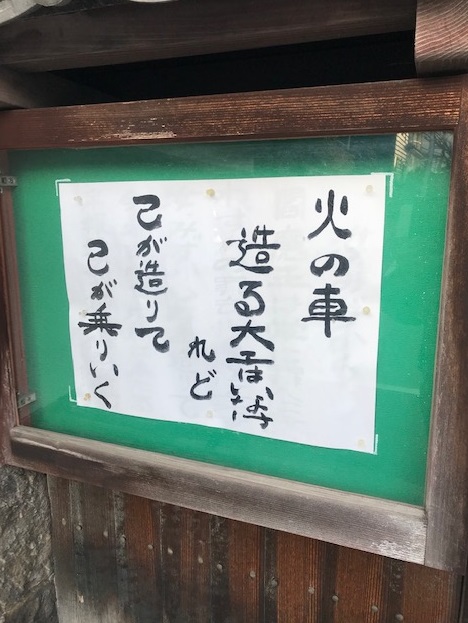 火の車
造る大工はいなけ
れど
己が造りて
己が乗りいく